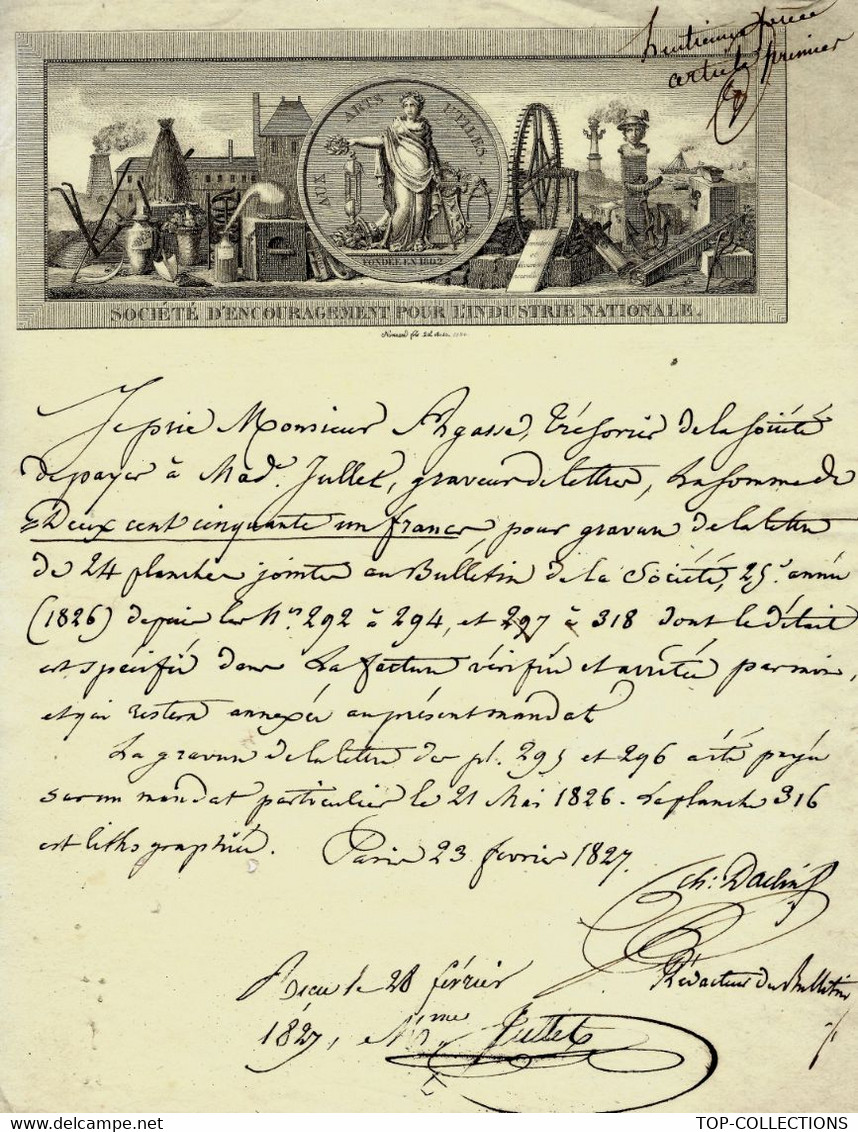 pièce
article premier
AUX ARTS UTILES
FONDÉE EN 1802
SOCIÉTÉ D'ENCOURAGEMENT POUR L'INDUSTRIE NATIONALE.
Je prie Monsieur Agasse, trésorier de la Société
de payer à Mad. Jullet, graveur de lettres, la somme de
Deux cent cinquante un francs, pour gravure de la lettre
de 24 planches jointes au Bulletin de la Société, 25e année
(1826) depuis les Nos 292 à 294, et 297 à 318 dont le détail
est spécifié dans la facture vérifiée et arrêtée par moi,
et qui restera annexée au présent mandat
La gravure de la lettre des pl. 295 et 296 a été payée
sur un mandat particulier le 21 Mai 1826. La planche 316
est lithographiée. Paris 23 février 1827.
Ch: Daclin
Rédacteur du Bulletin
Reçu le 28 février
1827, Mme Jullet
TOP-COLLECTIONS